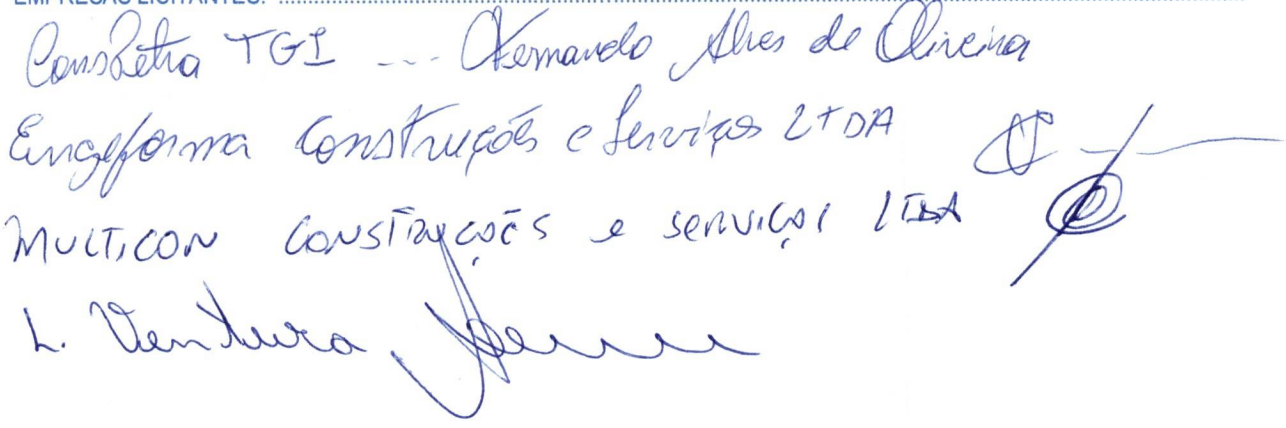 EMPRESAS LICITANTES:
Consletra TGI --- Fernando Alves de Oliveira
Engeforma Construções e Serviços LTDA
MULTICON CONSTRUÇÕES e SERVIÇOS LTDA
L. Ventura